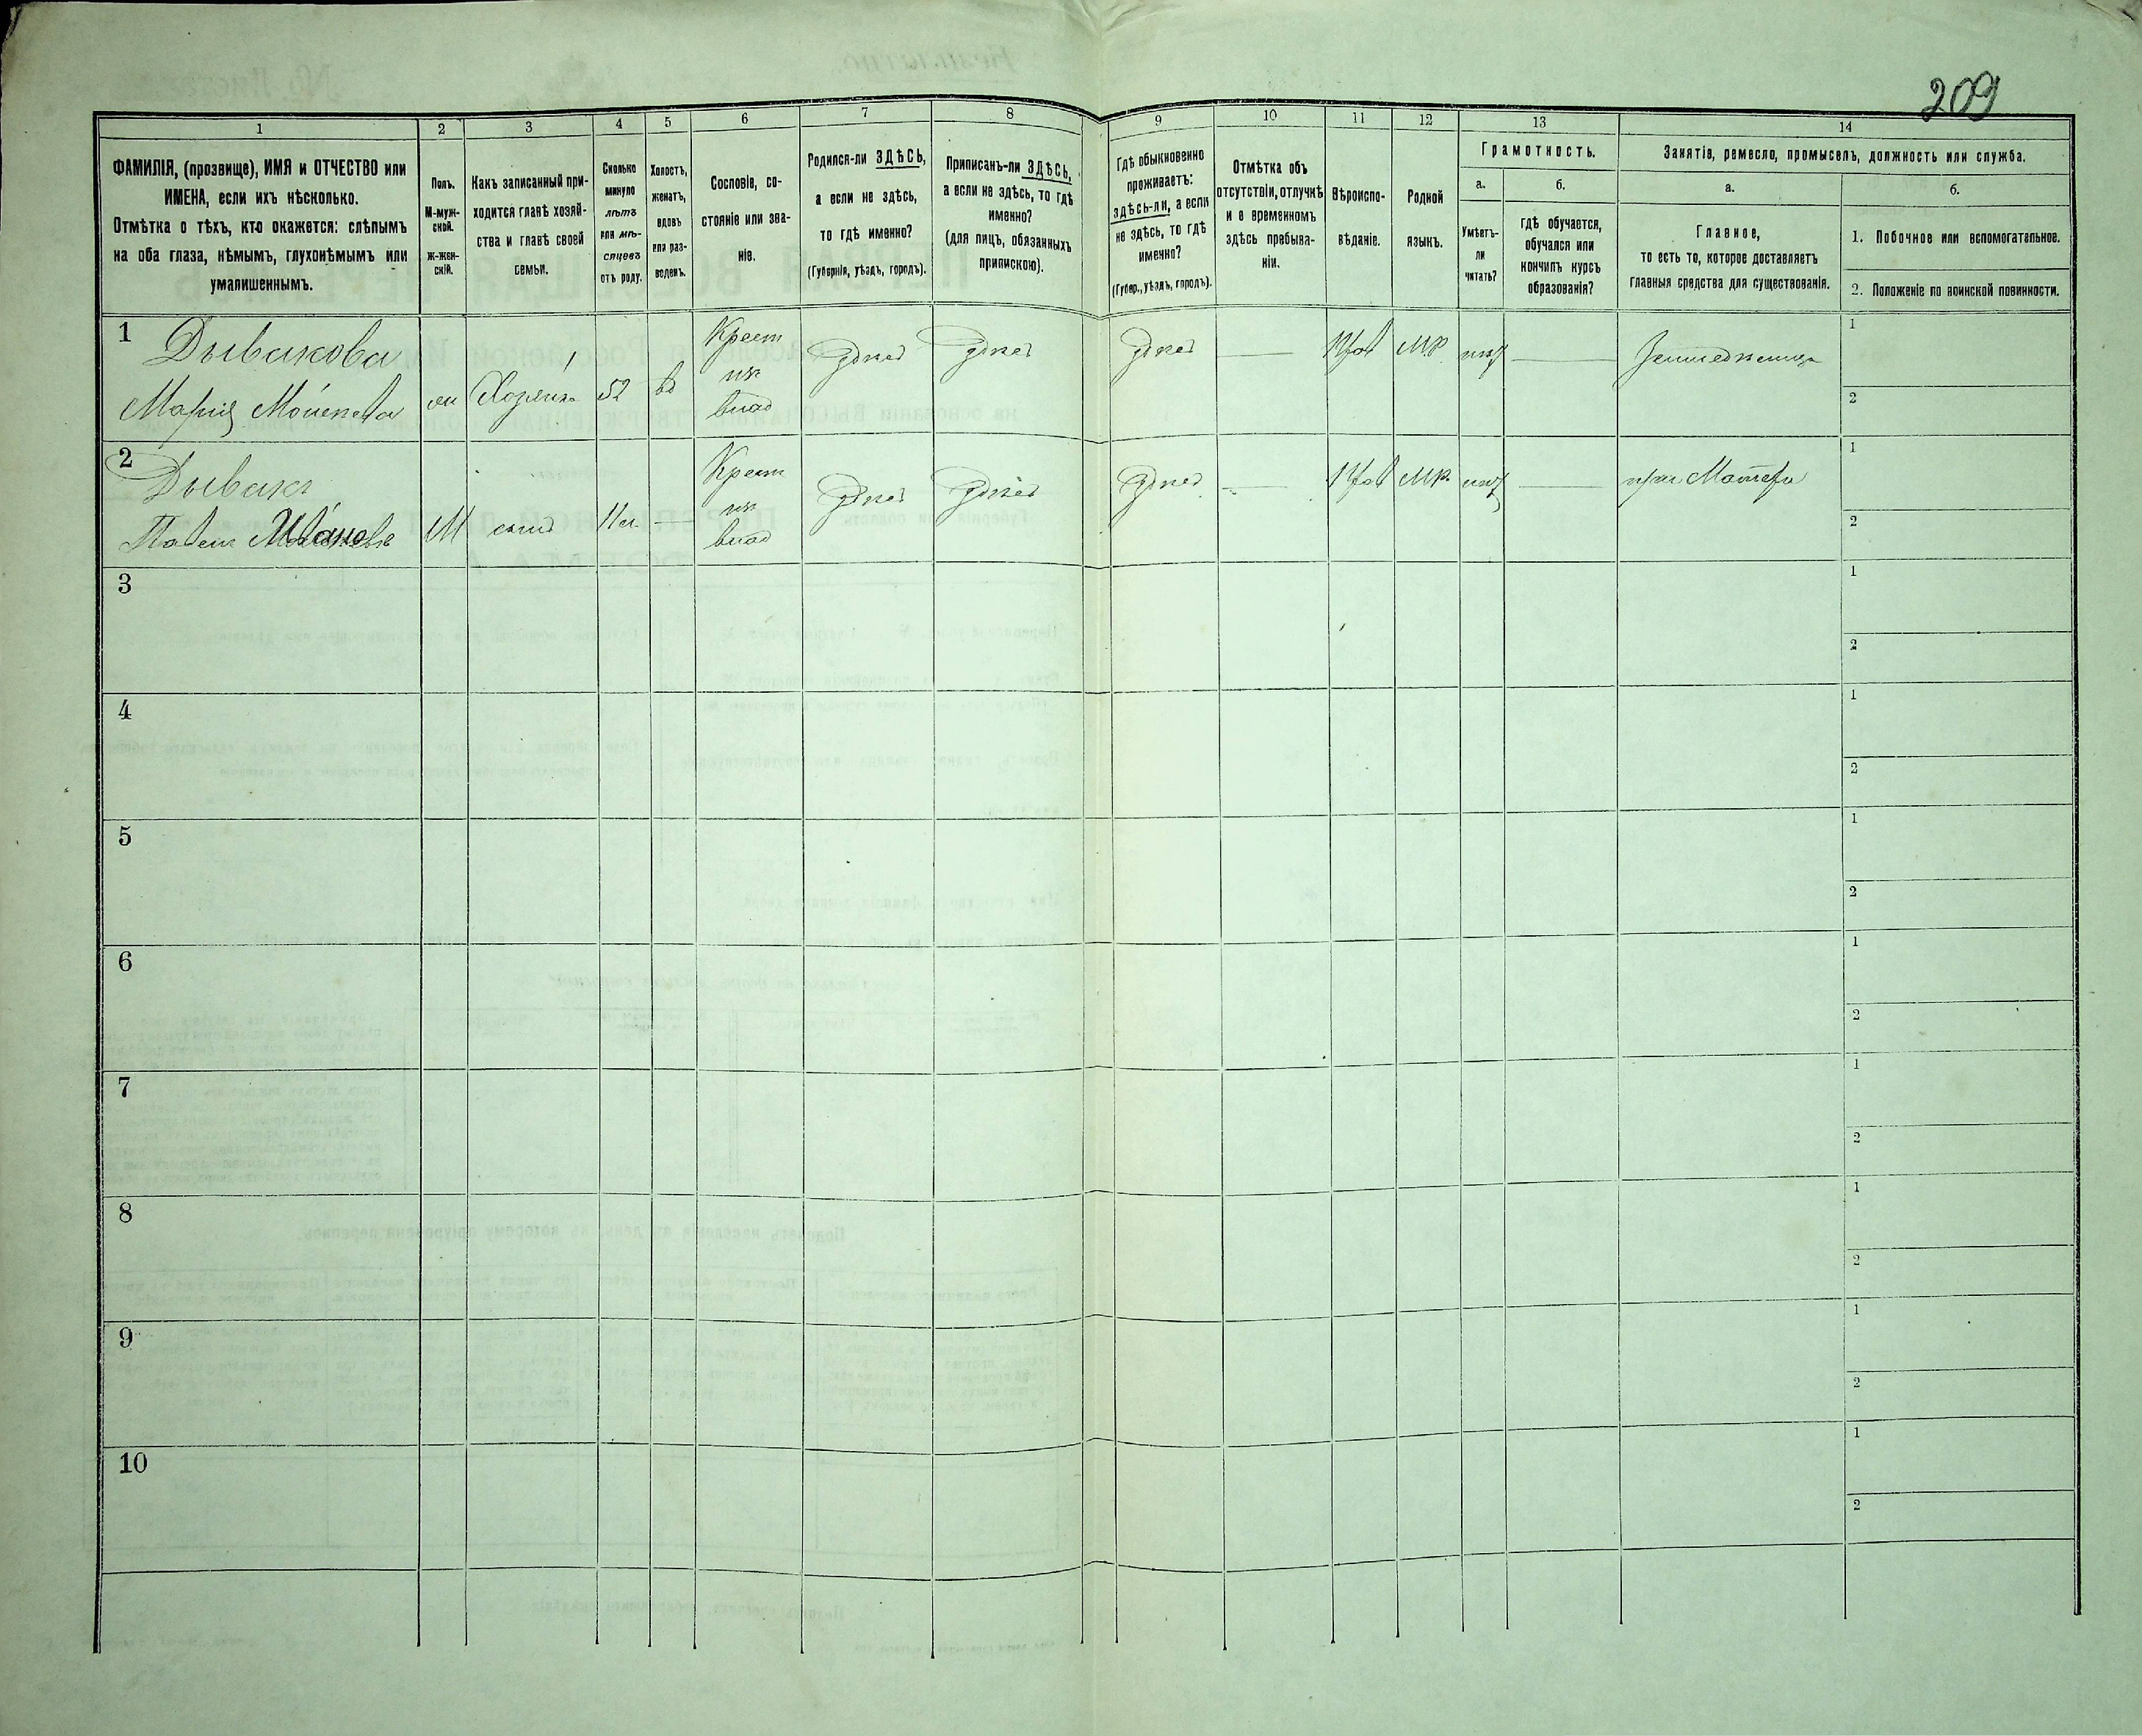 209
1 2 3 4 5 6 7 8 9 10 11 12 13 14
ФАМИЛІЯ, (прозвище), ИМЯ и ОТЧЕСТВО или
ИМЕНА, если ихъ нѣсколько.
Отмѣтка о тѣхъ, кто окажется: слѣпымъ
на оба глаза, нѣмымъ, глухонѣмымъ или
умалишеннымъ.
Полъ.
М-муж-
ской.
ж-жен-
скій.
Какъ записанный при-
ходится главѣ хозяй-
ства и главѣ своей
семьи.
Сколько
минуло
лѣтъ
или мѣ-
сяцевъ
отъ роду.
Холостъ,
женатъ,
вдовъ
или раз-
веденъ.
Сословіе, со-
стояніе или зва-
ніе.
Родился-ли ЗДѢСЬ,
а если не здѣсь,
то гдѣ именно?
(Губернія, уѣздъ, городъ).
Приписанъ-ли ЗДѢСЬ,
а если не здѣсь, то гдѣ
именно?
(для лицъ, обязанныхъ
припискою).
Гдѣ обыкновенно
проживаетъ:
здѣсь-ли, а если
не здѣсь, то гдѣ
именно?
(Губер., уѣздъ, городъ).
Отмѣтка объ
отсутствіи, отлучкѣ
и о временномъ
здѣсь пребыва-
ніи.
Вѣроиспо-
вѣданіе.
Родной
языкъ.
Грамотность.
а.
Умѣетъ-
ли
читать?
б.
гдѣ обучается,
обучался или
кончилъ курсъ
образованія?
Занятіе, ремесло, промыселъ, должность или служба.
а.
Главное,
то есть то, которое доставляетъ
главныя средства для существованія.
б.
1. Побочное или вспомогательное.
2. Положеніе по воинской повинности.
1
Дывакова
Марія
Хозяйка
52
вд
Крест
из
влад
здѣсь
здѣсь
здѣсь
Прав
МР
нѣт
1
2
2
Дывакъ
Павелъ Иванов
М
сынъ
11
Крест
из
влад
здѣсь
здѣсь
здѣсь
Прав
МР.
нѣт
при Матери
1
2
3
1
2
4
1
2
5
1
2
6
1
2
7
1
2
8
1
2
9
1
2
10
1
2